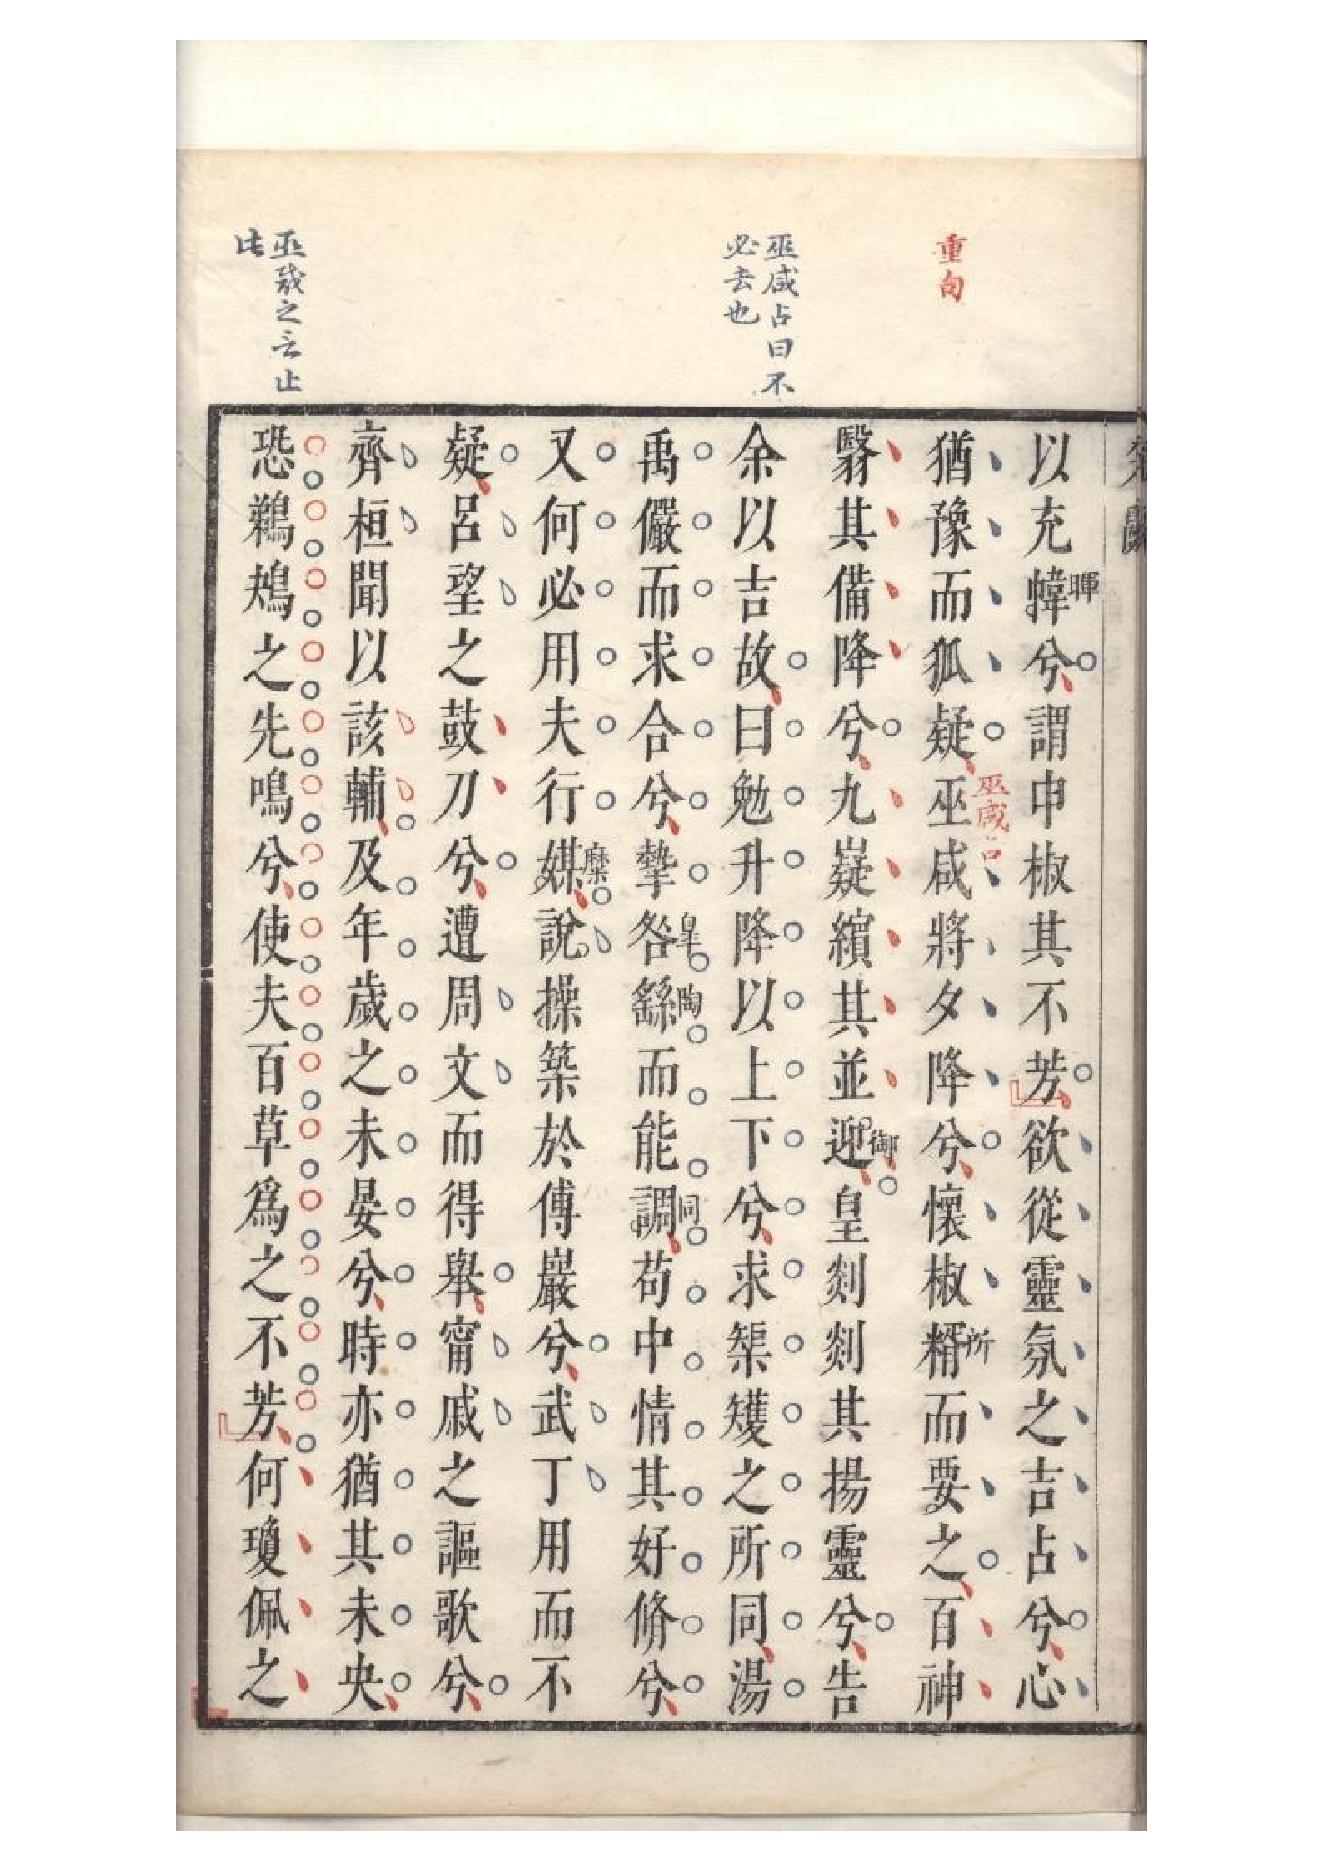 重句
巫咸占曰不
必去也
巫咸之言止
此
以充幃兮謂申椒其不芳欲從靈氛之吉占兮心
暉
猶豫而狐疑巫咸將夕降兮懷椒糈而要之百神
巫咸占
所
翳其備降兮九嶷繽其並迎皇剡剡其揚靈兮告
御
余以吉故曰勉升降以上下兮求榘矱之所同湯
禹儼而求合兮摯咎繇而能調苟中情其好脩兮
皐陶
同
又何必用夫行媒說操築於傅巖兮武丁用而不
糜
疑呂望之鼓刀兮遭周文而得舉甯戚之謳歌兮
齊桓聞以該輔及年歲之未晏兮時亦猶其未央
恐鵜鴂之先鳴兮使夫百草爲之不芳何瓊佩之